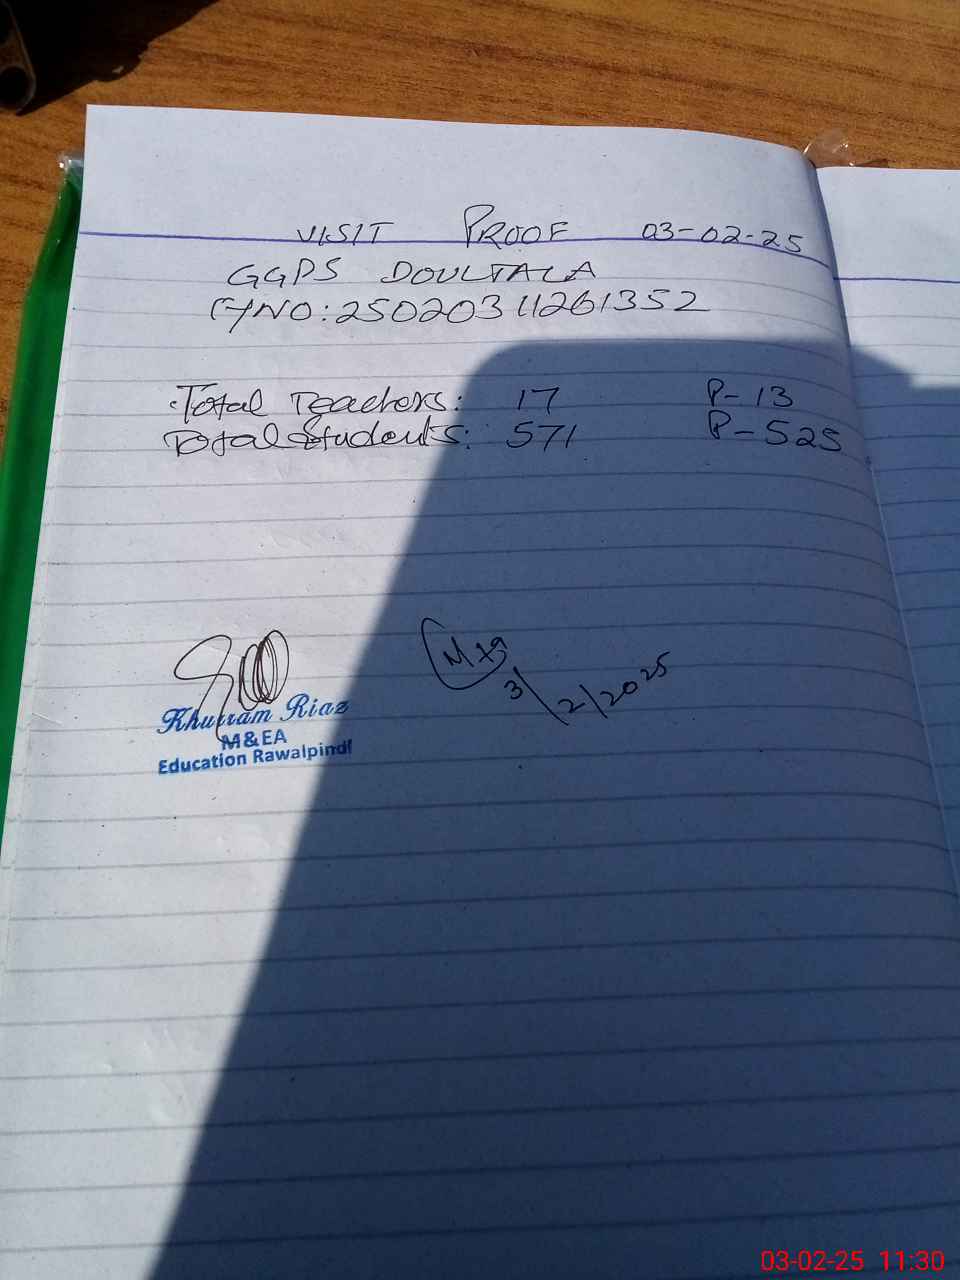 VISIT PROOF 03-02-25
GGPS DOULTALA
NO: 25020311261352
Total Teachers: 17 P- 13
Total Students: 571 P- 525
Khurram Riaz
M&EA
Education Rawalpindi
3/2/2025
03-02-25 11:30